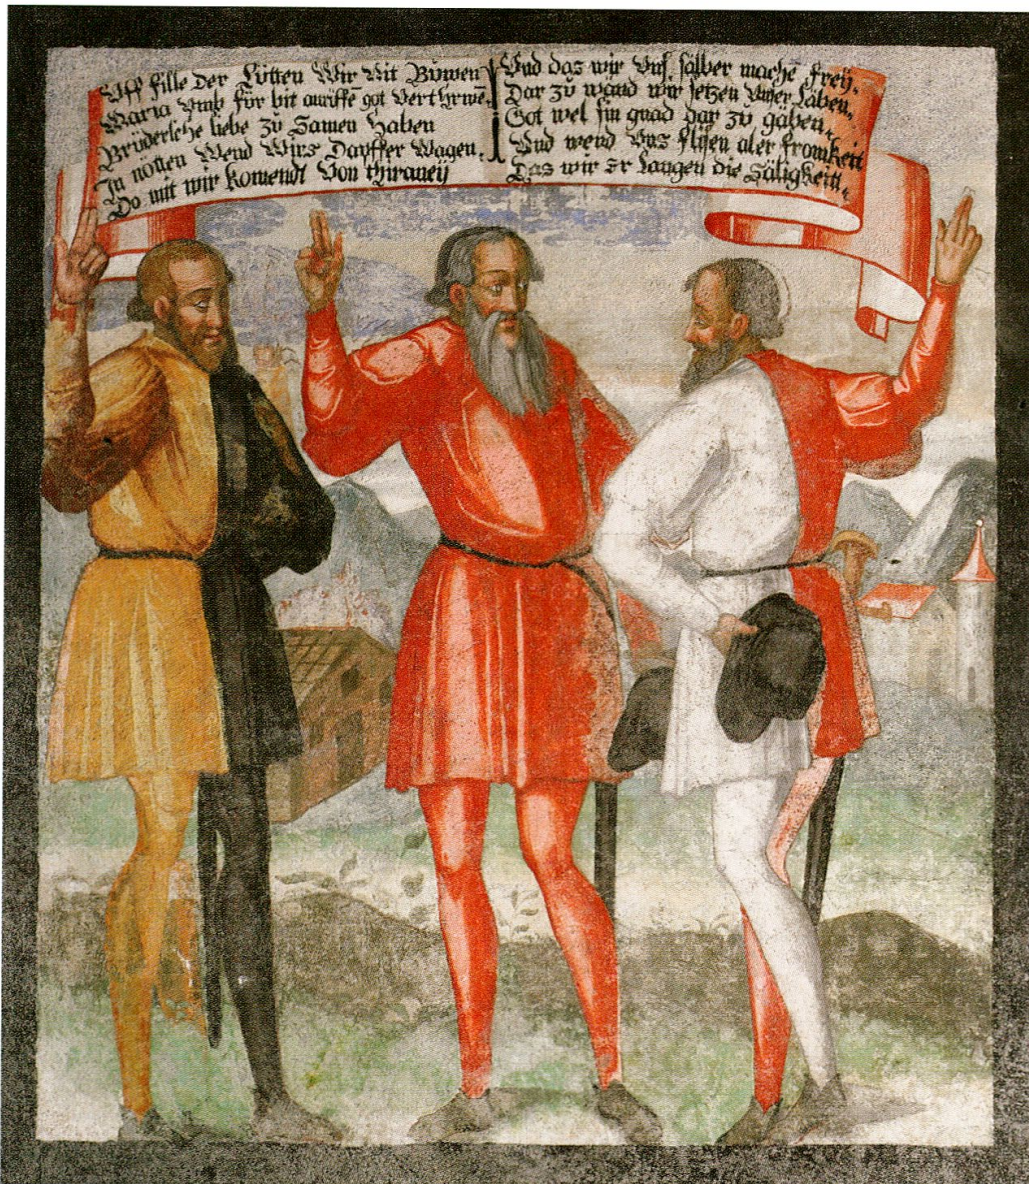 Uff fille Der Lütten Wir Nit Büwen
Maria Vmb für bit anrüffē got Vert hrwē.
Brüdersche liebe Zü Samen Haben
In nötten Wend Wirs Dapffer Wagen.
Do mit wir Komendt Von thiraney
Vnd das wir Vnß sälber machē frey.
Dar zü wand wir setzen Vnser Läben.
Got wel sin gnad dar zü gäben.
Vnd wend vns flisen aler fromkeit
Das wir Er langen die Säligkeitt.